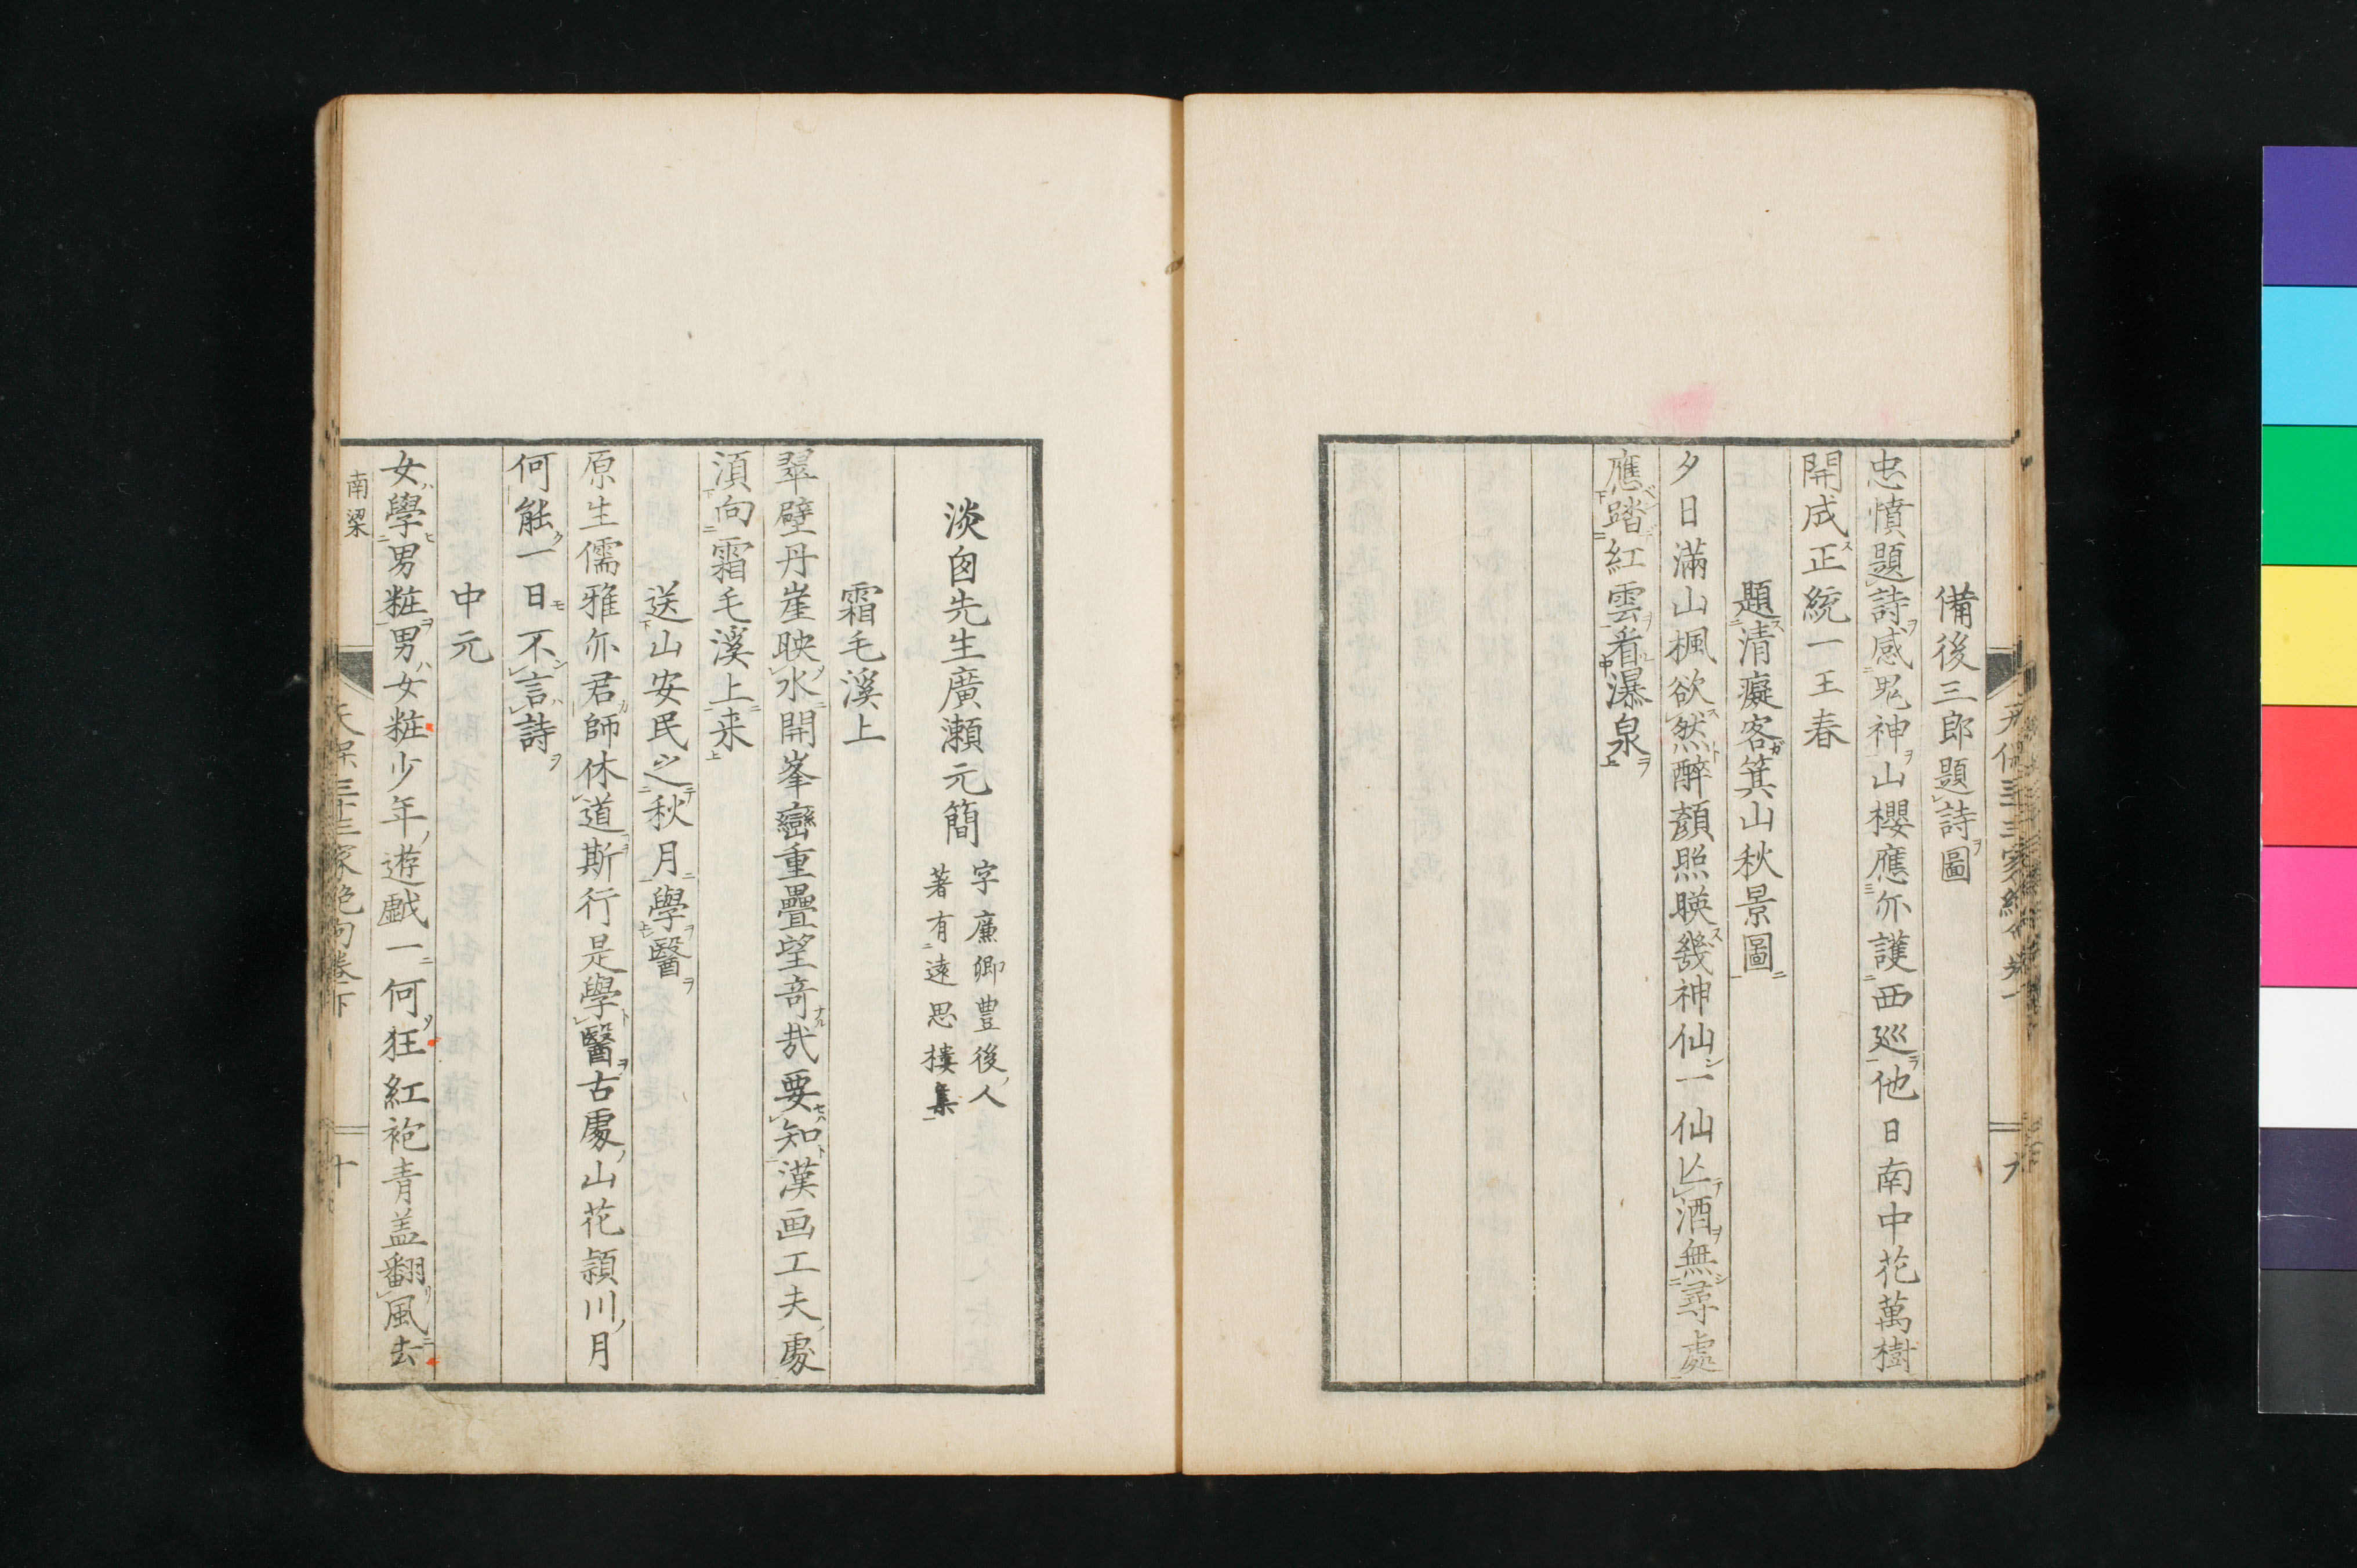 備後三郎題詩圖
忠憤題詩感鬼神山櫻應亦護西巡他日南中花萬樹
開成正統一王春
題清癡客箕山秋景圖
夕日滿山楓欲然醉顏照暎幾神仙一仙亾酒無尋處
應踏紅雲看瀑泉
淡囱先生廣瀬元簡
字廉卿豊後人
著有遠思樓集
霜毛溪上
翠壁丹崖映水開峯巒重疊望竒哉要知漢画工夫處
湏向霜毛溪上来
送山安民之秋月學醫
原生儒雅亦君師休道斯行是學醫古處山花頴川月
何能一日不言詩
中元
女學男粧男女粧少年遊戯一何狂紅袍青盖翻風去
南梁
天保三十三家絶句巻下